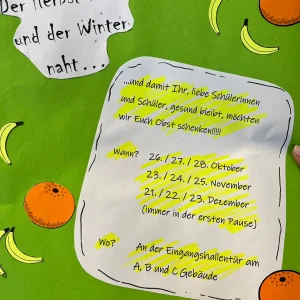 Der Herbst
und der Winter
naht . . .
...und damit Ihr, liebe Schülerinnen
und Schüler, gesund bleibt, möchten
wir Euch Obst schenken!!!!!
Wann? 26. / 27. / 28. Oktober
23. / 24. / 25. November
21. / 22. / 23. Dezember
(immer in der ersten Pause)
Wo? An der Eingangshallentür am
A, B und C Gebäude